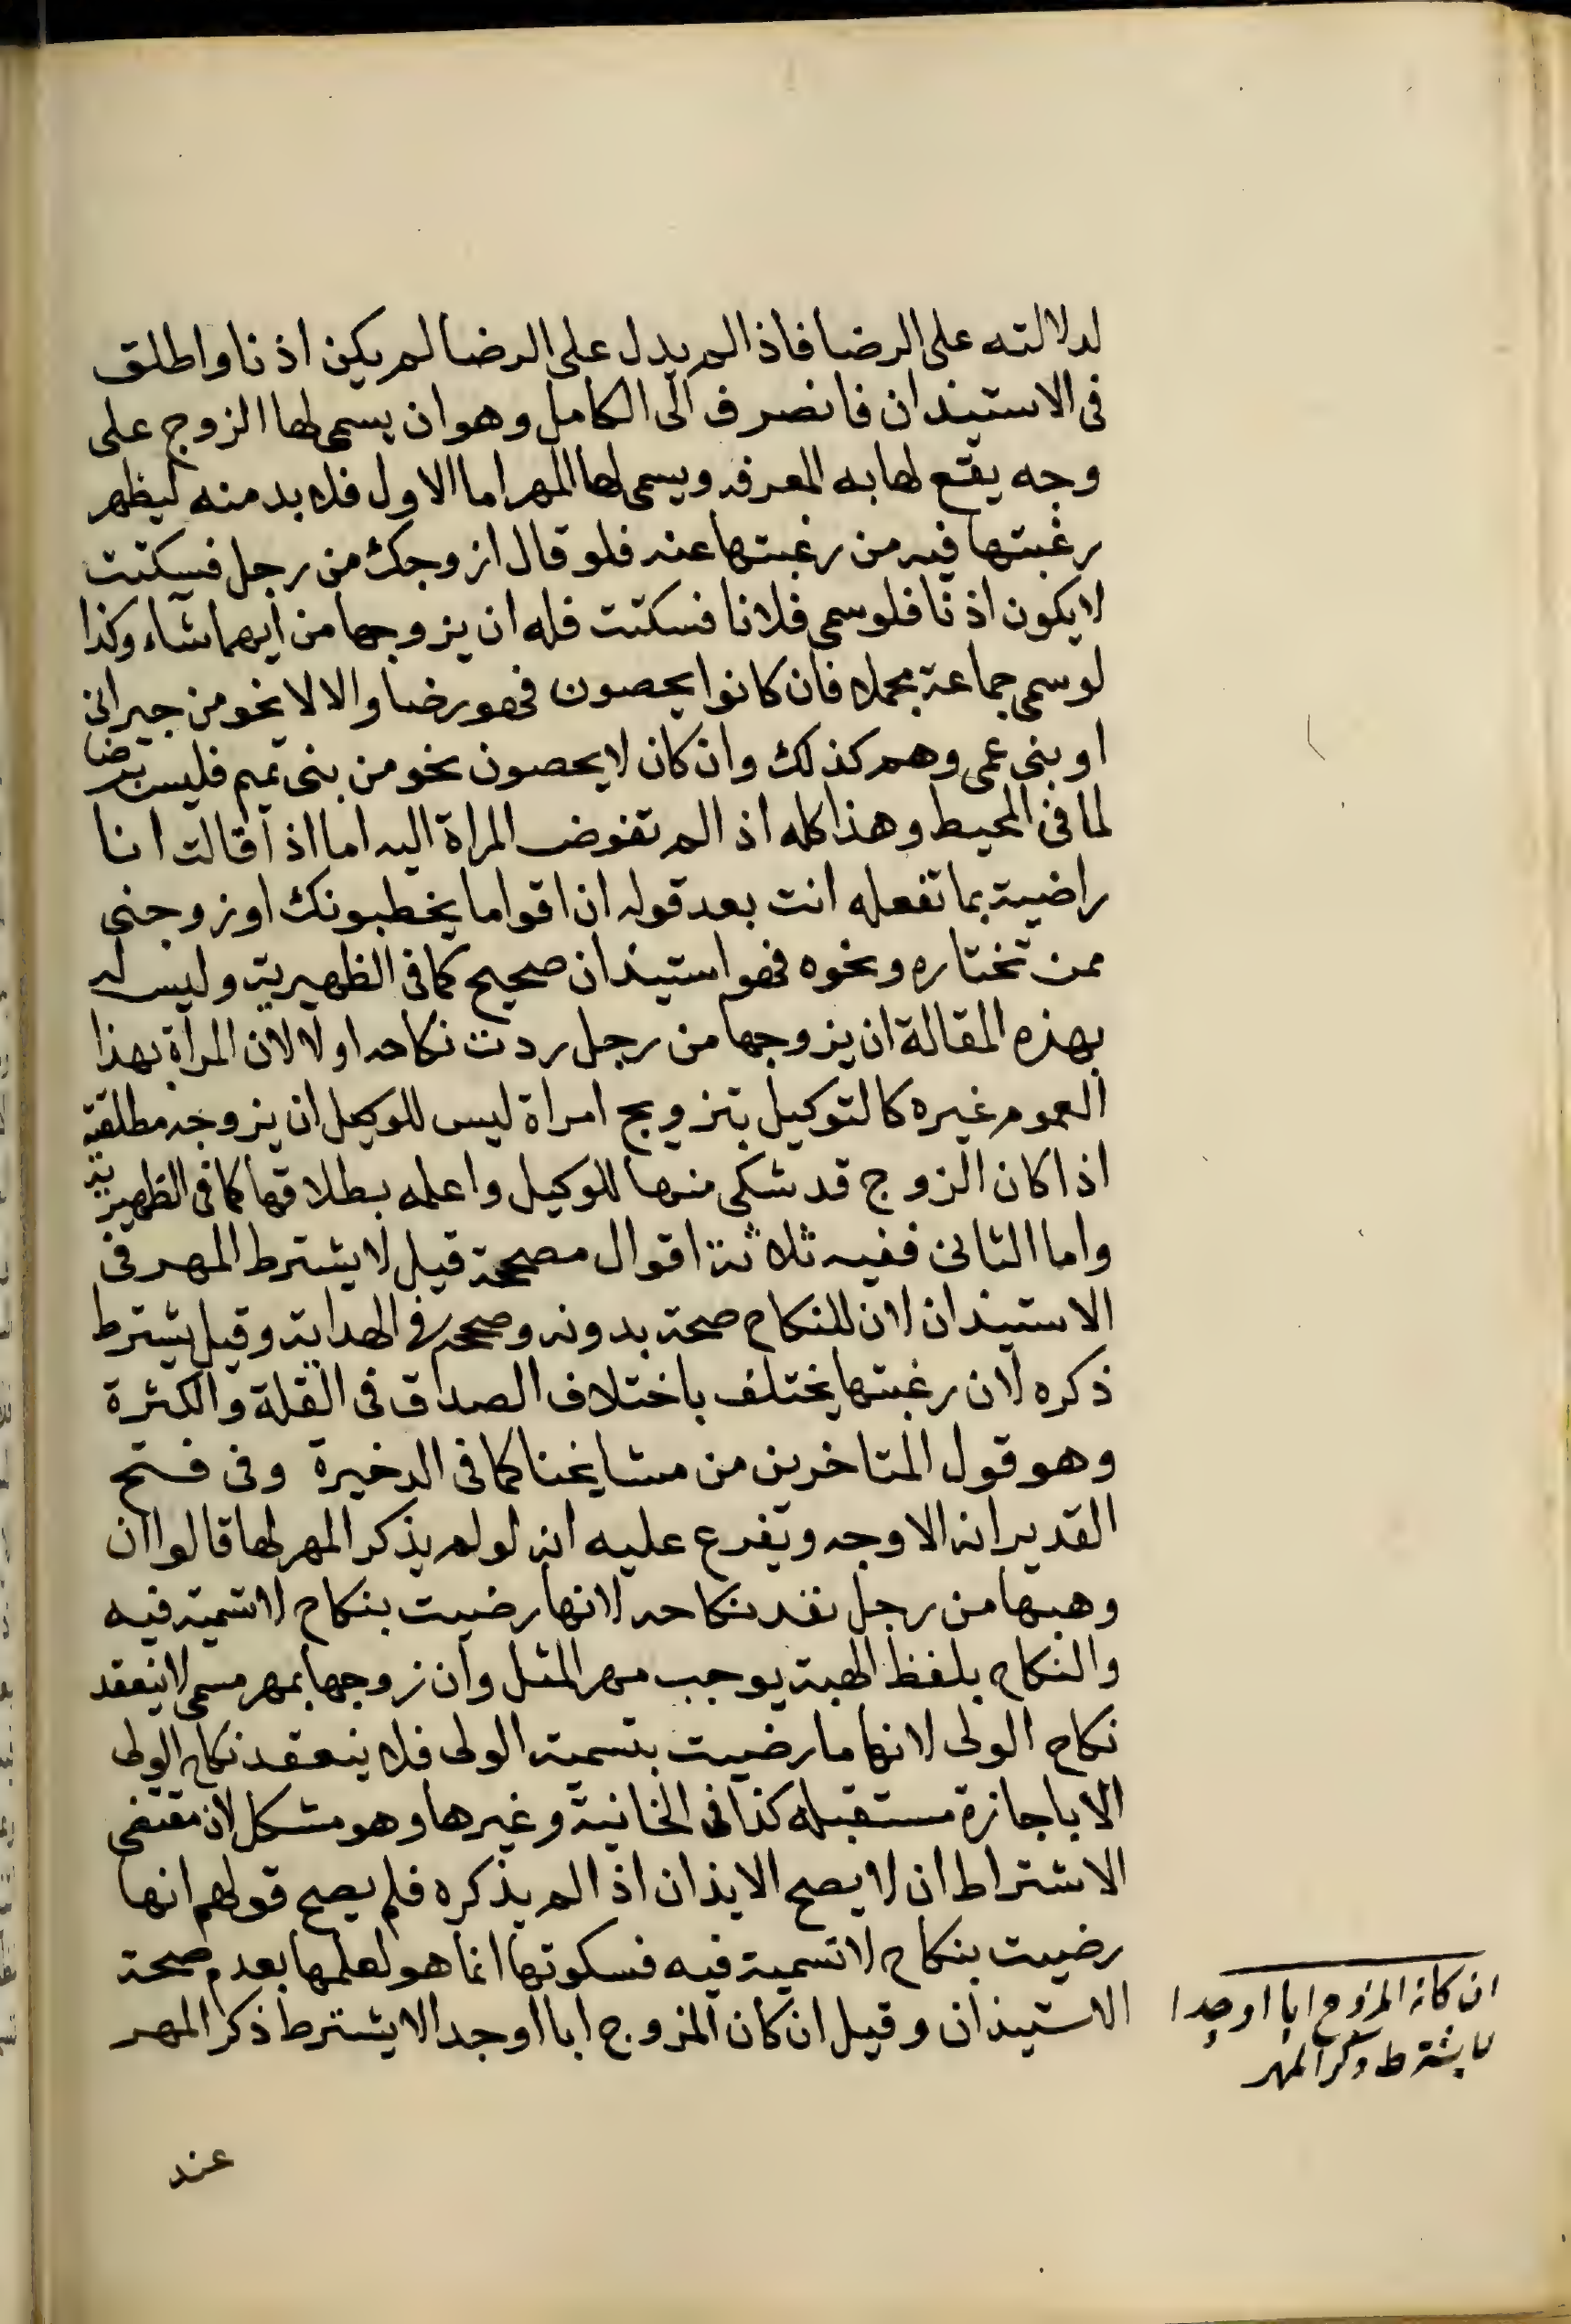 لدلالته على الرضا فاذا لم يدل على الرضا لم يكن اذنا واطلق
فى الاستيذان فانصرف الى الكامل وهو ان يسمى لها الزوج على
وجه يقع لها به المعرفه ويسمى لها المهر اما الاول فلا بد منه ليظهر
رغبتها فيه من رغبتها عنه فلو قال ازوجك من رجل فسكتت
لا يكون اذنا فلو سمى فلانا فسكتت فله ان يزوجها من ايهما شاء وكذا
لو سمى جماعة مجملا فان كانوا يحصون فهو رضا والا لا نحو من جيرانى
او بنى عمى وهم كذلك وان كان لا يحصون نحو من بنى تميم فليس برضا
لما فى المحيط وهذا كله اذا لم تفوض المراة اليه اما اذا قالت انا
راضية بما تفعله انت بعد قوله ان اقواما يخطبونك او زوجنى
ممن تختاره ونحوه فهو استيذان صحيح كما فى الظهيرية وليس له
بهذه المقالة ان يزوجها من رجل ردت نكاحه اولا لان المراة بهذا
العموم غيره كالتوكيل بتزويج امراة ليس للوكيل ان يزوجه مطلقته
اذا كان الزوج قد شكى منها للوكيل واعلمه بطلاقها كما فى الظهيرية
واما الثانى ففيه ثلاثة اقوال مصححة قيل لا يشترط المهر فى
الاستيذان لان للنكاح صحة بدونه وصححه فى الهداية وقيل يشترط
ذكره لان رغبتها يختلف باختلاف الصداق فى القلة والكثرة
وهو قول المتاخرين من مشايخنا كما فى الدخيرة وفى فتح
القدير انه الاوجه ويفرع عليه انه لو لم يذكر المهر لها قالوا ان
وهبها من رجل نفد نكاحه لانها رضيت بنكاح لا تسمية فيه
والنكاح بلفظ الهبة يوجب مهر المثل وان زوجها بمهر مسمى لا ينعقد
نكاح الولى لانها ما رضيت بتسمية الولى فلا ينعقد نكاح الولى
الا باجازة مستقبله كذا فى الخانية وغيرها وهو مشكل لان مقتضى
الاشتراط ان لا يصح الايذان اذا لم يذكره فلم يصح قولهم انها
رضيت بنكاح لا تسمية فيه فسكوتها انما هو لعلمها بعدم صحة
الاستيذان وقيل ان كان المزوج ابا او جدا لا يشترط ذكر المهر
ان كان المزوج ابا او جدا
لا يشترط ذكر المهر
عند